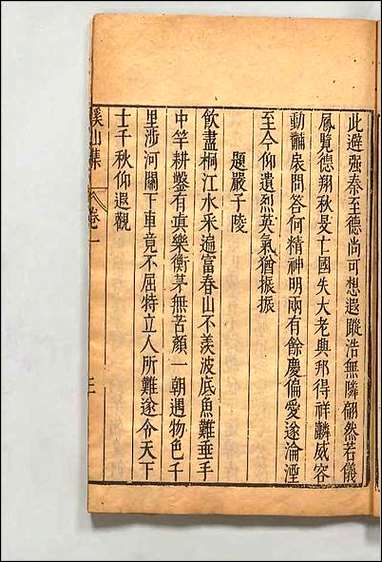 此避强秦至德尚可想遐蹤浩無隣翩然若儀
鳳覽德翔秋旻十國失大老典邦得祥麟威容
動黼扆問答何精神明兩有餘慶偏愛遂淪湮
至今仰遺烈英氣猶振振
題嚴子陵
飲盡桐江水采遍富春山不羨波底魚難垂手
中竿耕鑿有真樂衡茅無苦顔一朝遇物色千
里涉河關下車竟不屈特立人所難遂令天下
士千秋仰遐觀
溪山集
卷一
三